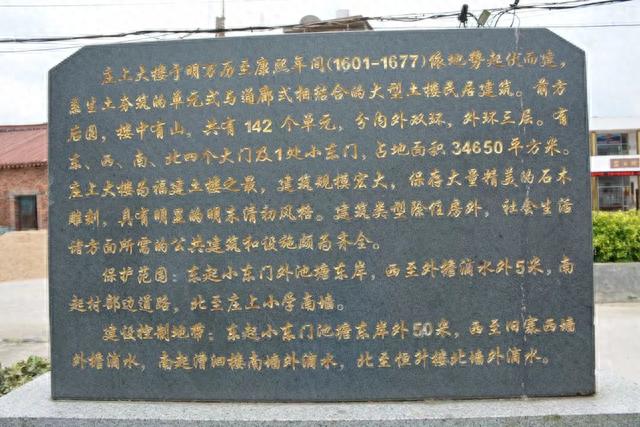 庄上大楼于明万历至康熙年间(1601-1677)依地势起伏而建,
系生土夯筑的单元式与通廊式相结合的大型土楼民居建筑。前方
后圆,楼中有山。共有142个单元,分内外双环,外环三层。有
东、西、南、北四个大门及1处小东门,占地面积34650平方米。
庄上大楼为福建土楼之最,建筑规模宏大,保存大量精美的石木
雕刻,具有明显的明末清初风格。建筑类型除住房外,社会生活
诸方面所需的公共建筑和设施颇为齐全。
保护范围:东起小东门外池塘东岸,西至外檐滴水外5米,南
起村部边道路,北至庄上小学南墙。
建设控制地带:东起小东门池塘东岸外50米,西至旧寨西墙
外檐滴水,南起漕洄楼南墙外滴水,北至恒升楼北墙外滴水。